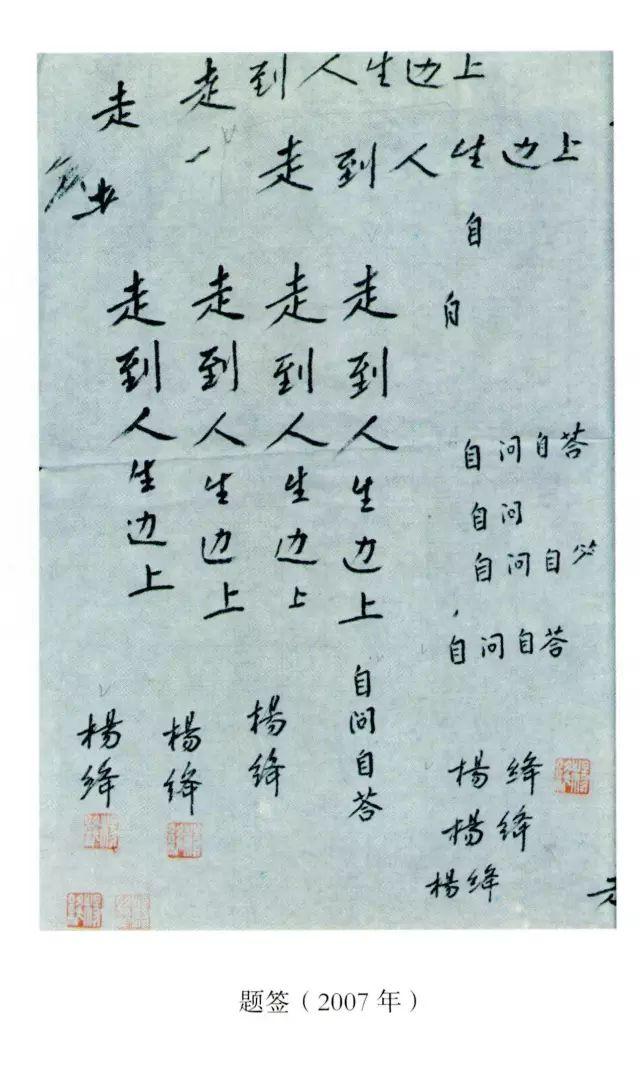 走到人生边上
走
走到人生边上
自
自
走到人生边上
走到人生边上
走到人生边上
走到人生边上
自问自答
自问自答
自问
自问自
自问自答
楊绛
楊绛
楊绛
楊绛
楊绛
楊绛
题签（2007 年）